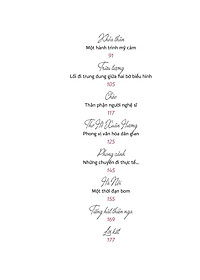 Khỏa thân
Một hành trình mỹ cảm
91
Trừu tượng
Lối đi trung dung giữa hai bờ biểu hình
105
Chèo
Thân phận người nghệ sĩ
117
Thơ Hồ Xuân Hương
Phong vị văn hóa dân gian
125
Phong cảnh
Những chuyến đi thực tế...
145
Hà Nội
Một thời đạn bom
155
Tiếng hát thiên nga
169
Lời kết
177